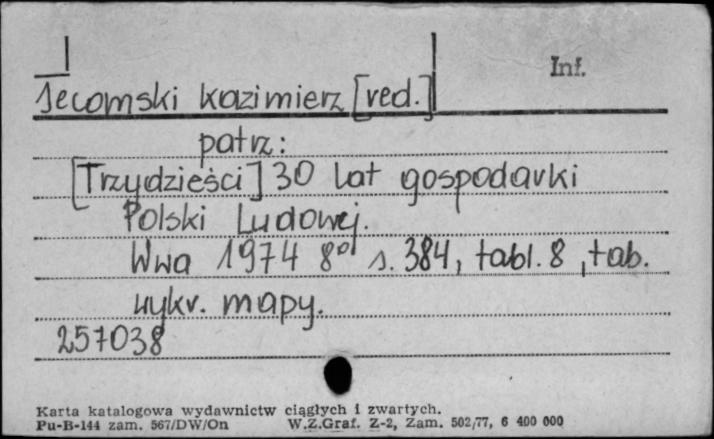 Inf.
Secomski Kazimierz [red.]
patrz:
[Trzydzieści] 30 lat gospodarki
Polski Ludowej.
Wwa 1974 8° s. 384, tabl. 8, tab.
wykr. mapy.
257038
Karta katalogowa wydawnictw ciągłych i zwartych.
Pu-B-144 zam. 567/DW/On W.Z.Graf. Z-2, Zam. 502/77, 6 400 000